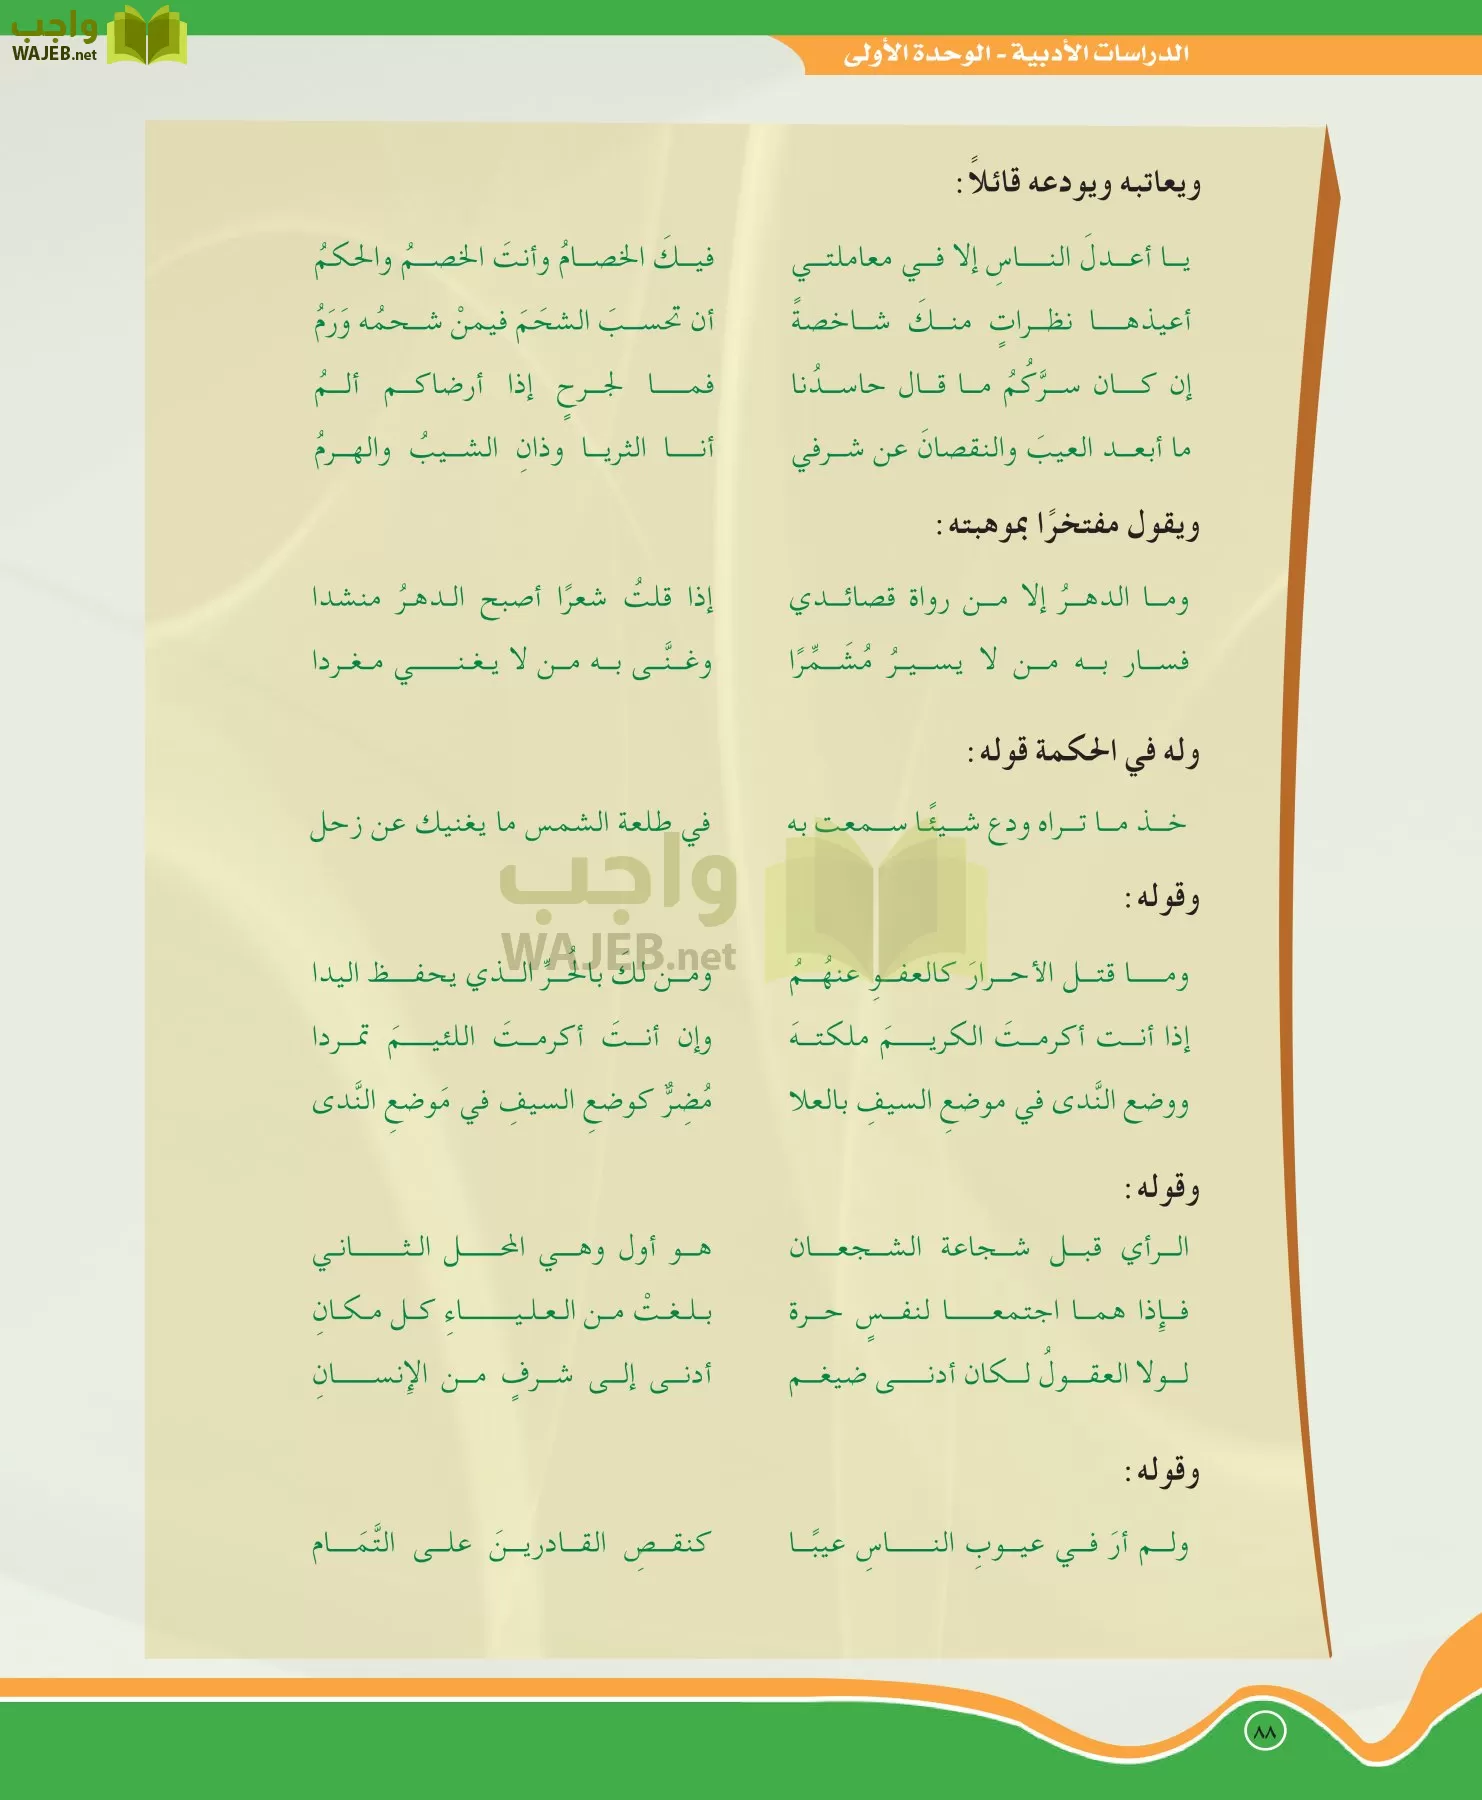 واجب
WAJEB.net
الدراسات الأدبية - الوحدة الأولى
ويعاتبه ويودعه قائلاً:
يا أعدلَ الناسِ إلا في معاملتي فيكَ الخصامُ وأنتَ الخصمُ والحكمُ
أعيذها نظراتٍ منكَ شاخصةً أن تحسبَ الشحَمَ فيمنْ شحمُه وَرَمُ
إن كان سرَّكُمُ ما قال حاسدُنا فما لجرحٍ إذا أرضاكم ألمُ
ما أبعد العيبَ والنقصانَ عن شرفي أنا الثريا وذانِ الشيبُ والهرمُ
ويقول مفتخرًا بموهبته:
وما الدهرُ إلا من رواة قصائدي إذا قلتُ شعرًا أصبح الدهرُ منشدا
فسار به من لا يسيرُ مُشَمِّرًا وغنَّى به من لا يغني مغردا
وله في الحكمة قوله:
خذ ما تراه ودع شيئًا سمعت به في طلعة الشمس ما يغنيك عن زحل
واجب
WAJEB.net
وقوله:
وما قتل الأحرارَ كالعفوِ عنهُمُ ومن لكَ بالحُرِّ الذي يحفظ اليدا
إذا أنت أكرمتَ الكريمَ ملكتهَ وإن أنتَ أكرمتَ اللئيمَ تمردا
ووضع النَّدى في موضعِ السيفِ بالعلا مُضِرٌّ كوضعِ السيفِ في مَوضعِ النَّدى
وقوله:
الرأي قبل شجاعة الشجعان هو أول وهي المحل الثاني
فإِذا هما اجتمعا لنفسٍ حرة بلغتْ من العلياءِ كل مكانِ
لولا العقولُ لكان أدنى ضيغم أدنى إلى شرفٍ من الإِنسانِ
وقوله:
ولم أرَ في عيوبِ الناسِ عيبًا كنقصِ القادرينَ على التَّمَام
٨٨